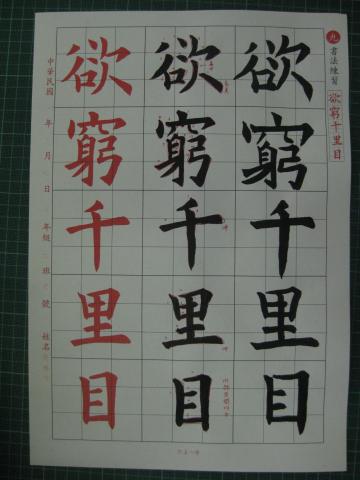 九 書法練習 欲窮千里目
欲窮千里目
欲窮千里目
欲窮千里目
中華民國 年 月 日 年級 班 號 姓名